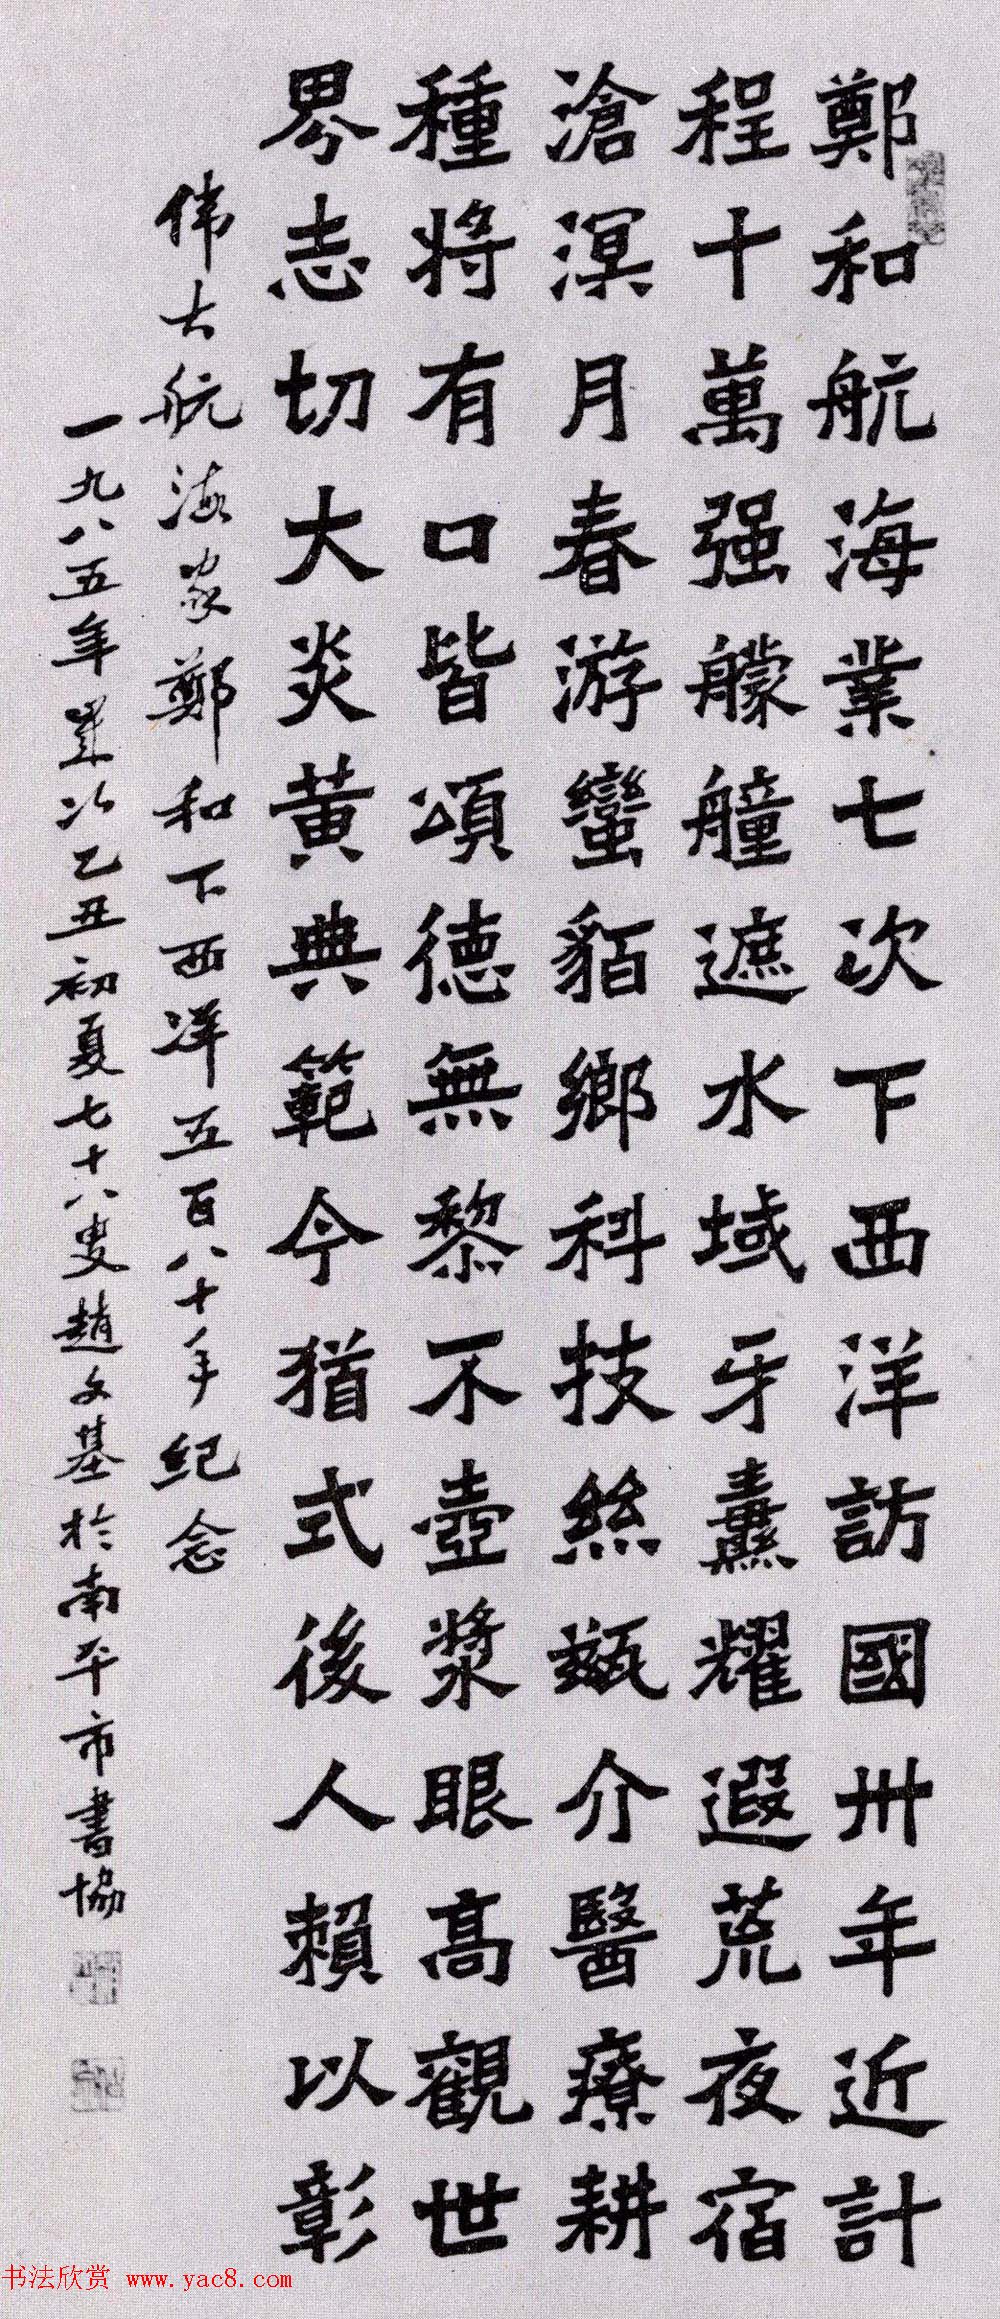 鄭和航海業七次下西洋訪國卅年近計
程十萬强艨艟遮水域牙纛耀遐荒夜宿
滄溟月春游蠻貊鄉科技絲瓷介醫療耕
種將有口皆頌德無黎不壺漿眼高觀世
界志切大炎黄典範今猶式後人賴以彰
伟大航海家鄭和下西洋五百八十年纪念
一九八五年岁次乙丑初夏七十八叟趙文基於南平市書協
书法欣赏 www.yac8.com